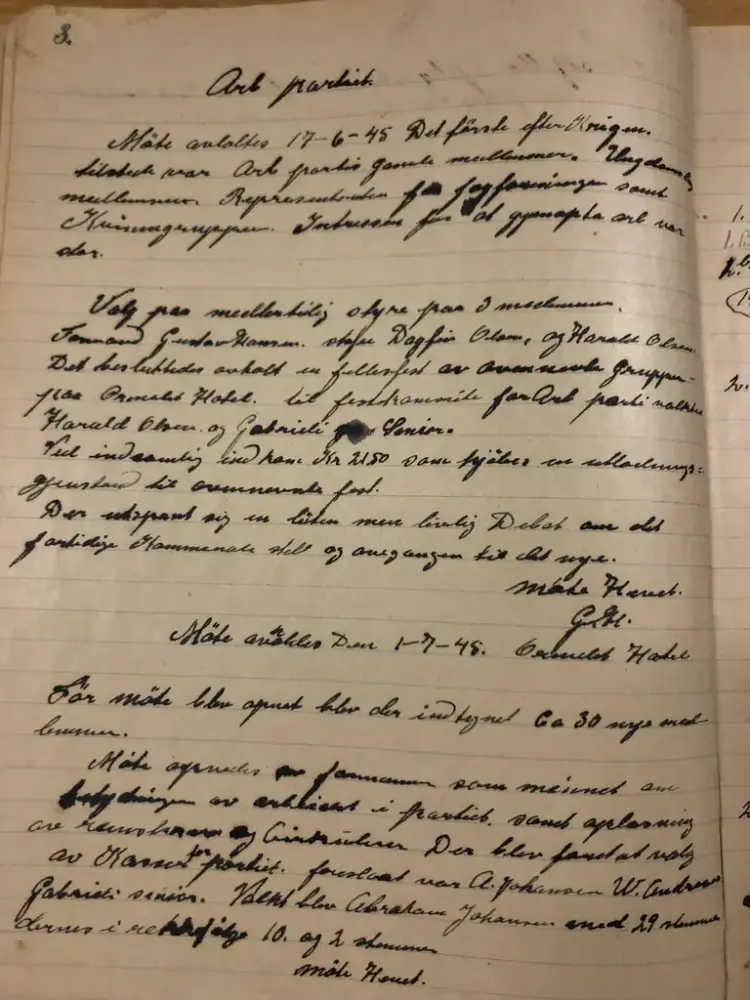 3.
Arb partiet.
Möte avholtes 17-6-45 Det förste efter Krigen.
tilstede var Arb partis gamle medlemmer. Ungdoms
medlemmer. Representanter fagforeningen samt
Kvinnegruppen. Intressen for at gjenopta arb var
stor.
Valg paa medlertidig styre paa 3 medlemmer.
Formand Gustav Hansen. Dagfin Olsen, og Harald Olsen.
Det besluttedes avholt en fellesfest av ovennevte Grupper
paa Hotel. til festkommite for Arb parti valtes
Harald Olsen og Gabrieli Senior.
Ved indsamling indkom Kr 21,50 som kjöbes en utlodnings=
gjenstand til ovennevnte fest.
Der utspant sig en liten men livlig Debat om det
fortidige Kommunale stell og overgangen til det nye.
möte Hevet.
G.H.
Möte avholdtes Den 1-7-45. Hotel
För möte blev opnet blev der indtegnet Ca 30 nye med
lemmer.
Möte opnedes av formannen som meinet om
betydningen av arbeidet i partiet. samt oplæsning
av og Cirkulærer Der blev foretat valg
av Kasser for partiet. foreslaat var A. Johansen W. Andresen
Gabrieli senior. Valkt blev Abraham Johansen med 29 stemmer
dernes i rekkefölge 10. og 2 stemmer
möte Hevet.
1.
2.